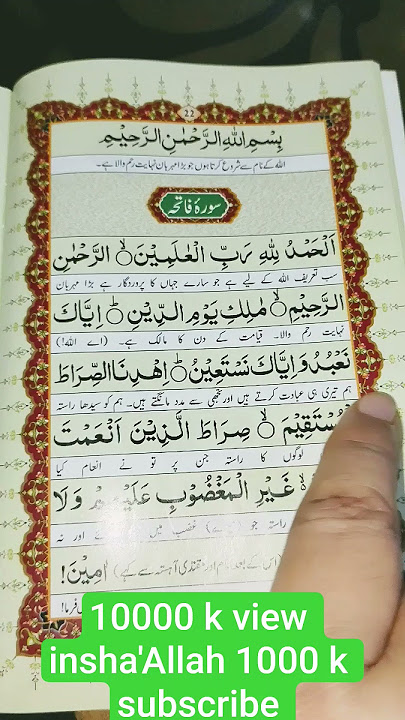 22
بِسْمِ اللهِ الرَّحْمٰنِ الرَّحِيْمِ
اللہ کے نام سے شروع کرتا ہوں جو بڑا مہربان نہایت رحم والا ہے۔
سورۂ فاتحہ
اَلْحَمْدُ لِلّٰهِ رَبِّ الْعٰلَمِيْنَ ۙ الرَّحْمٰنِ
سب تعریف اللہ کے لیے ہے جو سارے جہاں کا پروردگار ہے بڑا مہربان
الرَّحِيْمِ ۙ مٰلِكِ يَوْمِ الدِّيْنِ ؕ اِيَّاكَ
نہایت رحم والا۔ قیامت کے دن کا مالک ہے۔ (اے اللہ!)
نَعْبُدُ وَاِيَّاكَ نَسْتَعِيْنُ ؕ اِهْدِنَا الصِّرَاطَ
ہم تیری ہی عبادت کرتے ہیں اور تجھی سے مدد مانگتے ہیں۔ ہم کو سیدھا راستہ
الْمُسْتَقِيْمَ ۙ صِرَاطَ الَّذِيْنَ اَنْعَمْتَ
لوگوں کا راستہ جن پر تو نے انعام کیا
غَيْرِ الْمَغْضُوْبِ عَلَيْهِمْ وَلَا
راستہ جو غضب میں اور نہ
(اس کے بعد امام اور مقتدی آہستہ سے کہے) اٰمِيْنَ!
10000 k view
insha'Allah 1000 k
subscribe